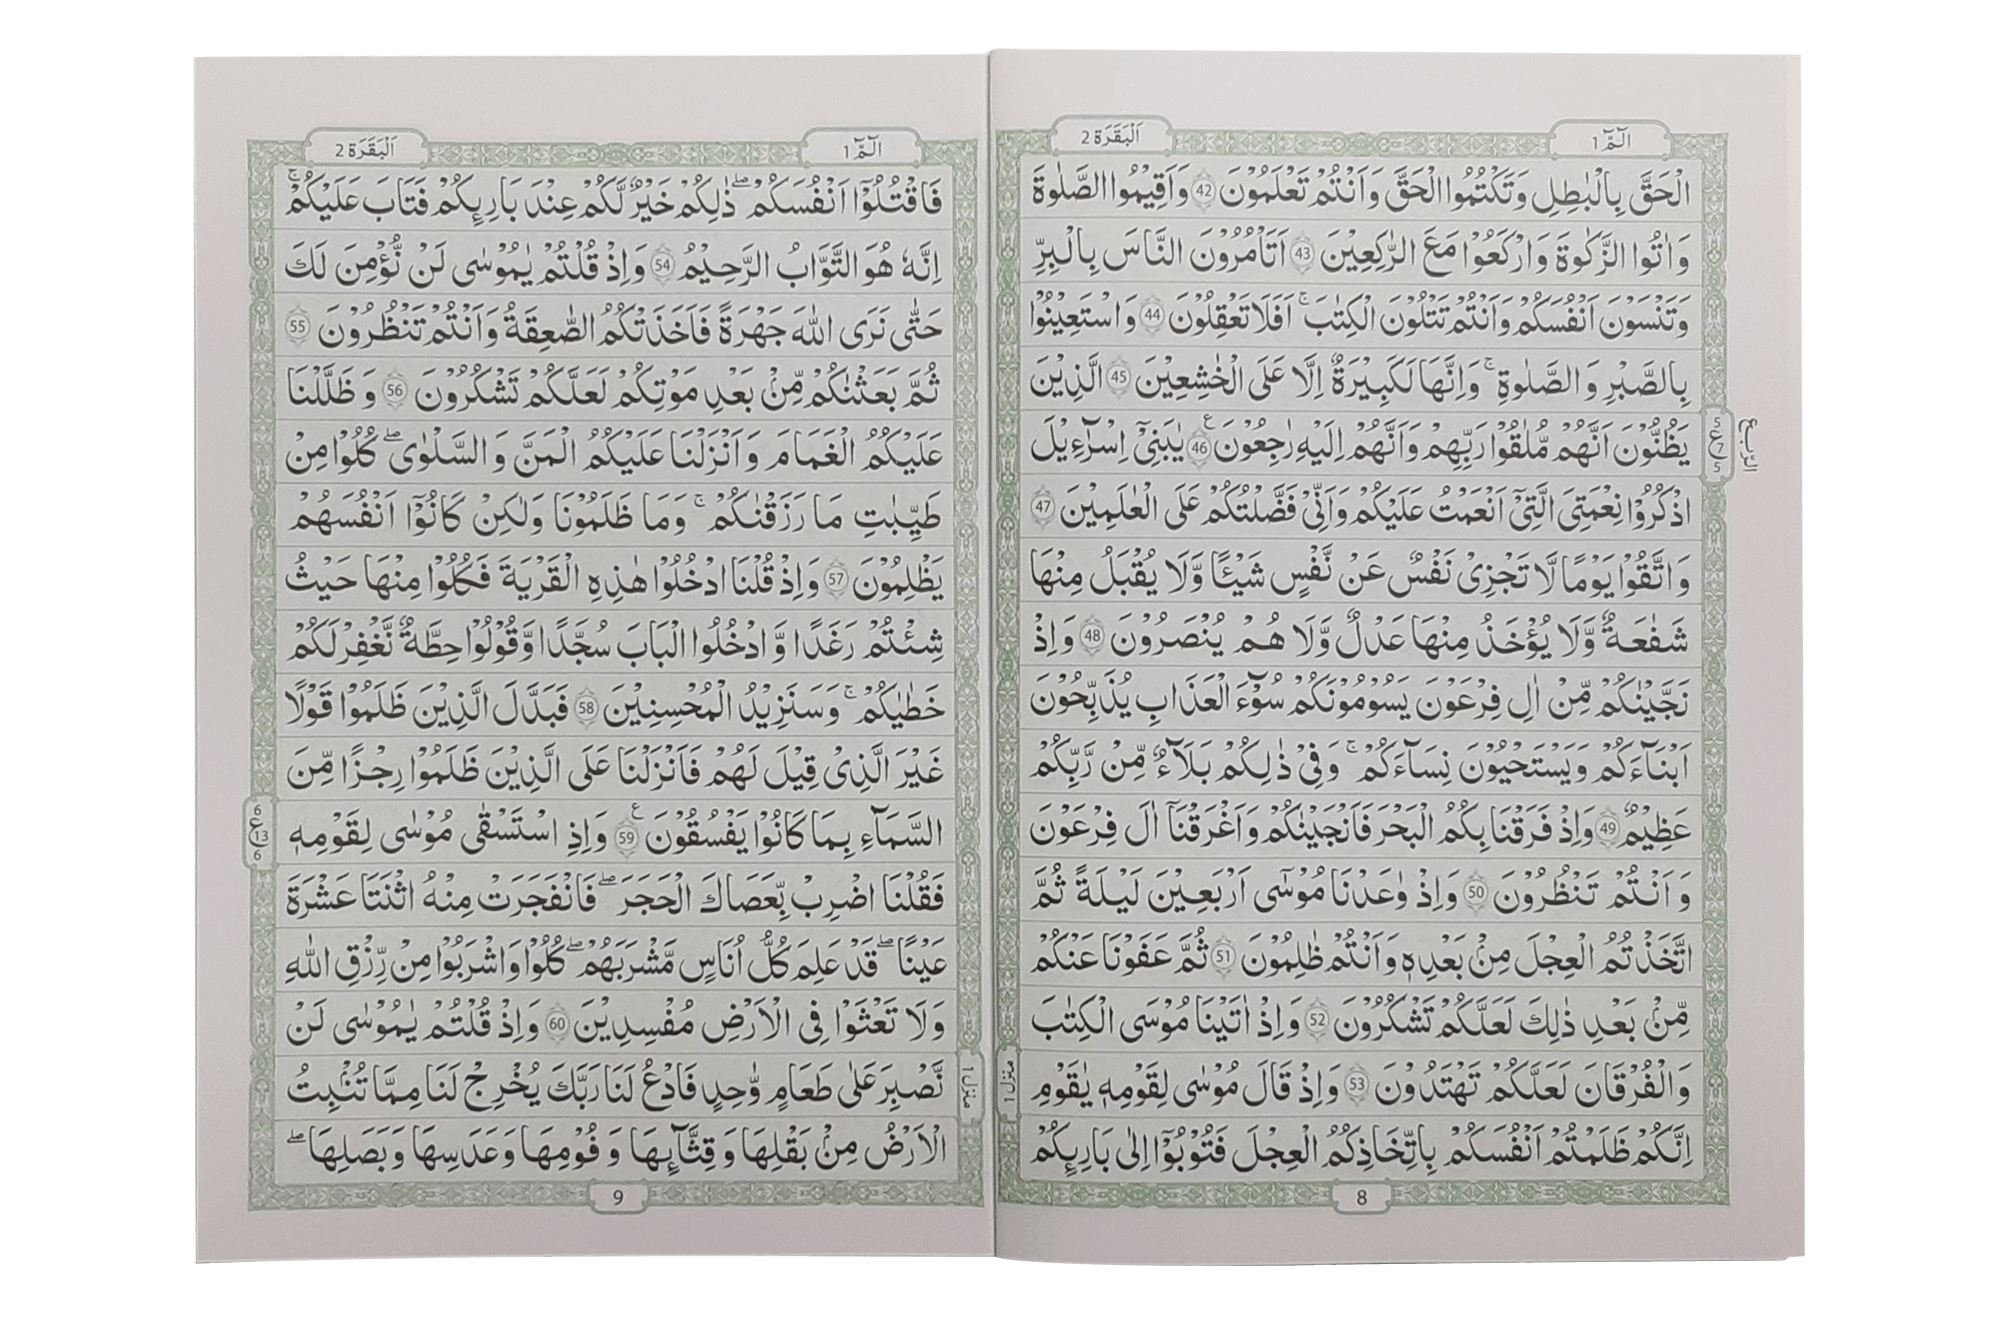 الٓمّٓ 1
اَلْبَقَرَة 2
الْحَقَّ بِالْبٰطِلِ وَتَكْتُمُوا الْحَقَّ وَاَنْتُمْ تَعْلَمُوْنَ 42 وَاَقِيْمُوا الصَّلٰوةَ
وَاٰتُوا الزَّكٰوةَ وَارْكَعُوْا مَعَ الرّٰكِعِيْنَ 43 اَتَاْمُرُوْنَ النَّاسَ بِالْبِرِّ
وَتَنْسَوْنَ اَنْفُسَكُمْ وَاَنْتُمْ تَتْلُوْنَ الْكِتٰبَ ۚ اَفَلَا تَعْقِلُوْنَ 44 وَاسْتَعِيْنُوْا
بِالصَّبْرِ وَالصَّلٰوةِ ۚ وَاِنَّهَا لَكَبِيْرَةٌ اِلَّا عَلَى الْخٰشِعِيْنَ 45 الَّذِيْنَ
يَظُنُّوْنَ اَنَّهُمْ مُّلٰقُوْا رَبِّهِمْ وَاَنَّهُمْ اِلَيْهِ رٰجِعُوْنَ 46 ع يٰبَنِيْٓ اِسْرَآءِيْلَ
اذْكُرُوْا نِعْمَتِيَ الَّتِيْٓ اَنْعَمْتُ عَلَيْكُمْ وَاَنِّيْ فَضَّلْتُكُمْ عَلَى الْعٰلَمِيْنَ 47
وَاتَّقُوْا يَوْمًا لَّا تَجْزِيْ نَفْسٌ عَنْ نَّفْسٍ شَيْـًٔا وَّلَا يُقْبَلُ مِنْهَا
شَفٰعَةٌ وَّلَا يُؤْخَذُ مِنْهَا عَدْلٌ وَّلَا هُمْ يُنْصَرُوْنَ 48 وَاِذْ
نَجَّيْنٰكُمْ مِّنْ اٰلِ فِرْعَوْنَ يَسُوْمُوْنَكُمْ سُوْٓءَ الْعَذَابِ يُذَبِّحُوْنَ
اَبْنَآءَكُمْ وَيَسْتَحْيُوْنَ نِسَآءَكُمْ ۚ وَفِيْ ذٰلِكُمْ بَلَآءٌ مِّنْ رَّبِّكُمْ
عَظِيْمٌ 49 وَاِذْ فَرَقْنَا بِكُمُ الْبَحْرَ فَاَنْجَيْنٰكُمْ وَاَغْرَقْنَآ اٰلَ فِرْعَوْنَ
وَاَنْتُمْ تَنْظُرُوْنَ 50 وَاِذْ وٰعَدْنَا مُوْسٰٓى اَرْبَعِيْنَ لَيْلَةً ثُمَّ
اتَّخَذْتُمُ الْعِجْلَ مِنْۢ بَعْدِهٖ وَاَنْتُمْ ظٰلِمُوْنَ 51 ثُمَّ عَفَوْنَا عَنْكُمْ
مِّنْۢ بَعْدِ ذٰلِكَ لَعَلَّكُمْ تَشْكُرُوْنَ 52 وَاِذْ اٰتَيْنَا مُوْسَى الْكِتٰبَ
وَالْفُرْقَانَ لَعَلَّكُمْ تَهْتَدُوْنَ 53 وَاِذْ قَالَ مُوْسٰى لِقَوْمِهٖ يٰقَوْمِ
اِنَّكُمْ ظَلَمْتُمْ اَنْفُسَكُمْ بِاتِّخَاذِكُمُ الْعِجْلَ فَتُوْبُوْٓا اِلٰى بَارِئِكُمْ
الرّبع
5
ع 7
5
منزل 1
8
الٓمّٓ 1
اَلْبَقَرَة 2
فَاقْتُلُوْٓا اَنْفُسَكُمْ ۖ ذٰلِكُمْ خَيْرٌ لَّكُمْ عِنْدَ بَارِئِكُمْ فَتَابَ عَلَيْكُمْ ۚ
اِنَّهٗ هُوَ التَّوَّابُ الرَّحِيْمُ 54 وَاِذْ قُلْتُمْ يٰمُوْسٰى لَنْ نُّؤْمِنَ لَكَ
حَتّٰى نَرَى اللّٰهَ جَهْرَةً فَاَخَذَتْكُمُ الصّٰعِقَةُ وَاَنْتُمْ تَنْظُرُوْنَ 55
ثُمَّ بَعَثْنٰكُمْ مِّنْۢ بَعْدِ مَوْتِكُمْ لَعَلَّكُمْ تَشْكُرُوْنَ 56 وَظَلَّلْنَا
عَلَيْكُمُ الْغَمَامَ وَاَنْزَلْنَا عَلَيْكُمُ الْمَنَّ وَالسَّلْوٰى ۖ كُلُوْا مِنْ
طَيِّبٰتِ مَا رَزَقْنٰكُمْ ۚ وَمَا ظَلَمُوْنَا وَلٰكِنْ كَانُوْٓا اَنْفُسَهُمْ
يَظْلِمُوْنَ 57 وَاِذْ قُلْنَا ادْخُلُوْا هٰذِهِ الْقَرْيَةَ فَكُلُوْا مِنْهَا حَيْثُ
شِئْتُمْ رَغَدًا وَّادْخُلُوا الْبَابَ سُجَّدًا وَّقُوْلُوْا حِطَّةٌ نَّغْفِرْ لَكُمْ
خَطٰيٰكُمْ ۚ وَسَنَزِيْدُ الْمُحْسِنِيْنَ 58 فَبَدَّلَ الَّذِيْنَ ظَلَمُوْا قَوْلًا
غَيْرَ الَّذِيْ قِيْلَ لَهُمْ فَاَنْزَلْنَا عَلَى الَّذِيْنَ ظَلَمُوْا رِجْزًا مِّنَ
السَّمَآءِ بِمَا كَانُوْا يَفْسُقُوْنَ 59 ع وَاِذِ اسْتَسْقٰى مُوْسٰى لِقَوْمِهٖ
فَقُلْنَا اضْرِبْ بِّعَصَاكَ الْحَجَرَ ۖ فَانْفَجَرَتْ مِنْهُ اثْنَتَا عَشْرَةَ
عَيْنًا ۖ قَدْ عَلِمَ كُلُّ اُنَاسٍ مَّشْرَبَهُمْ ۖ كُلُوْا وَاشْرَبُوْا مِنْ رِّزْقِ اللّٰهِ
وَلَا تَعْثَوْا فِى الْاَرْضِ مُفْسِدِيْنَ 60 وَاِذْ قُلْتُمْ يٰمُوْسٰى لَنْ
نَّصْبِرَ عَلٰى طَعَامٍ وَّاحِدٍ فَادْعُ لَنَا رَبَّكَ يُخْرِجْ لَنَا مِمَّا تُنْۢبِتُ
الْاَرْضُ مِنْۢ بَقْلِهَا وَقِثَّآئِهَا وَفُوْمِهَا وَعَدَسِهَا وَبَصَلِهَا ۖ
6
ع 13
6
منزل 1
9